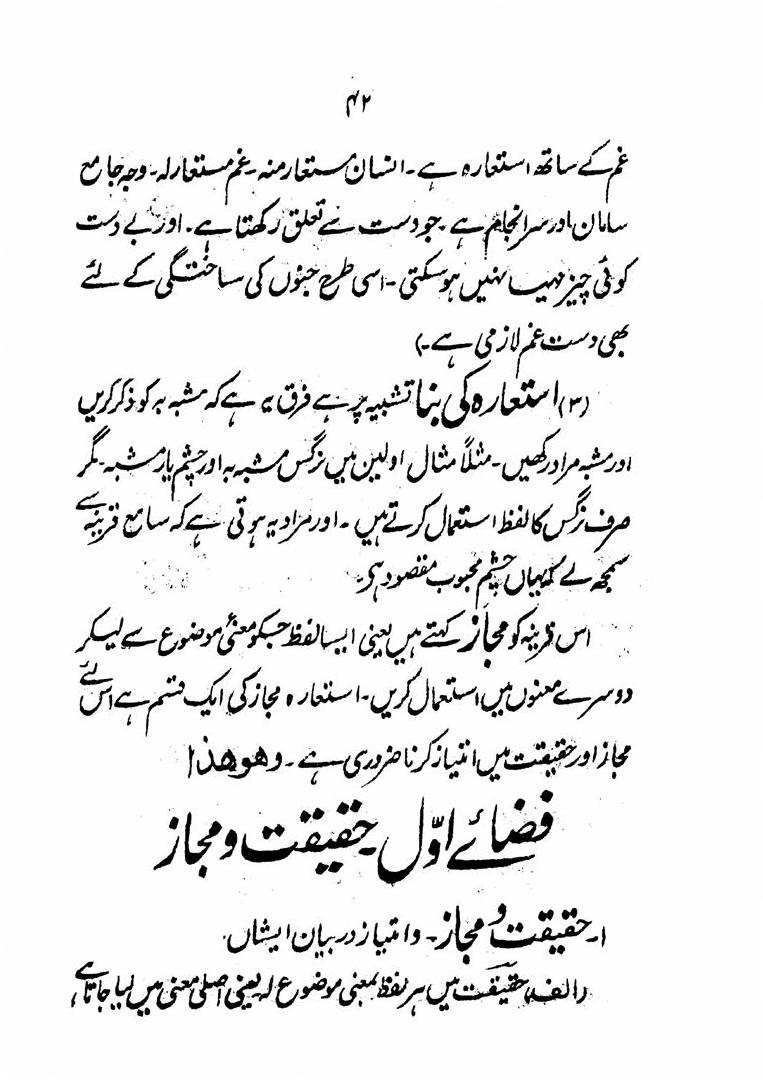 ۴۲
غم کے ساتھ استعارہ ہے۔ انسان مستعار منہ۔ غم مستعارلہ۔ وجہ جامع
سامان اور سرانجام ہے۔ جو دست سے تعلق رکھتا ہے۔ اور بے دست
کوئی چیز مہیا نہیں ہوسکتی۔ اسی طرح جنوں کی ساختگی کے لئے
بھی دست غم لازمی ہے۔)
(۳) استعارہ کی بنا تشبیہ پر ہے فرق یہ ہے کہ مشبہ بہ کو ذکر کریں
اور مشبہ مراد رکھیں۔ مثلاً مثال اولین میں نرگس مشبہ بہ اور چشم یار مشبہ۔ مگر
صرف نرگس کا لفظ استعمال کرتے ہیں۔ اور مراد یہ ہوتی ہے کہ سامع قرینہ سے
سمجھ لے کہ یہاں چشم محبوب مقصود ہے۔
اس قرینہ کو مجاز کہتے ہیں یعنی ایسا لفظ جسکو معنیٔ موضوع سے لیکر
دوسرے معنوں میں استعمال کریں۔ استعارہ مجاز کی ایک قسم ہے اس لئے
مجاز اور حقیقت میں امتیاز کرنا ضروری ہے۔ وھو ھذا
فضائے اوّل۔ حقیقت و مجاز
۱۔ حقیقت و مجاز۔ و امتیاز در بیان ایشاں۔
(الف) حقیقت میں ہر لفظ بمعنی موضوع لہ یعنی اصلی معنی میں لیا جاتا ہے،